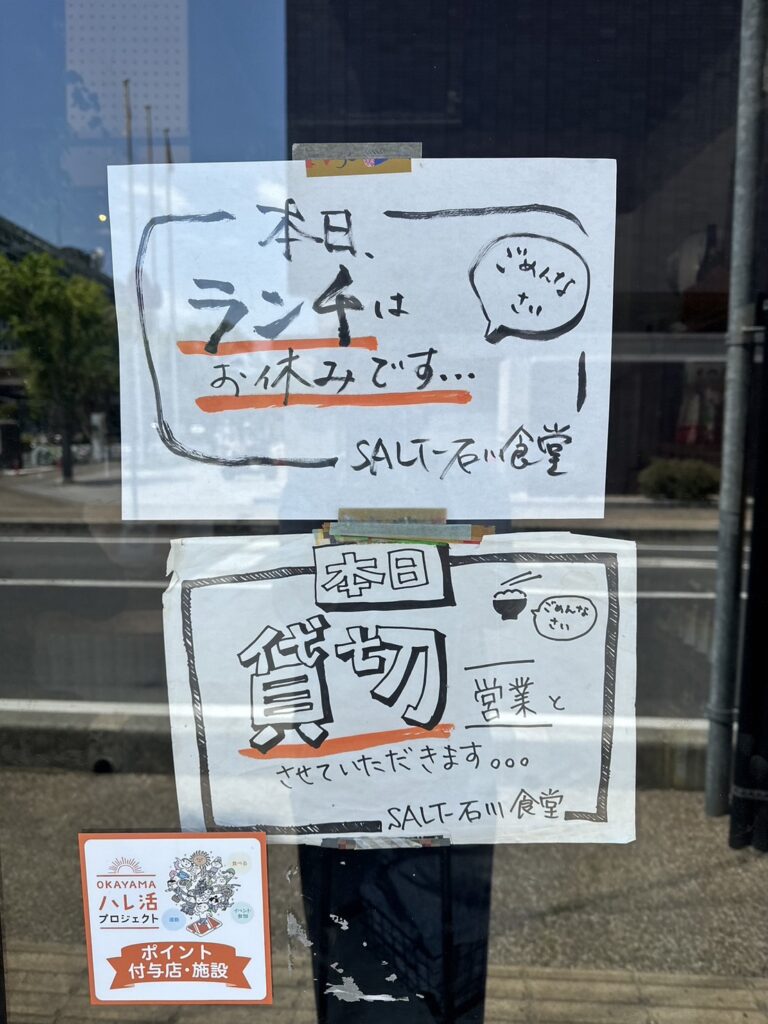 本日、
ランチは
お休みです...
ごめんなさい
SALT-石川食堂
本日
貸切
営業と
させていただきます。。。
ごめんなさい
SALT-石川食堂
OKAYAMA
ハレ活
プロジェクト
食べる
運動
イベント
参加
ポイント
付与店・施設